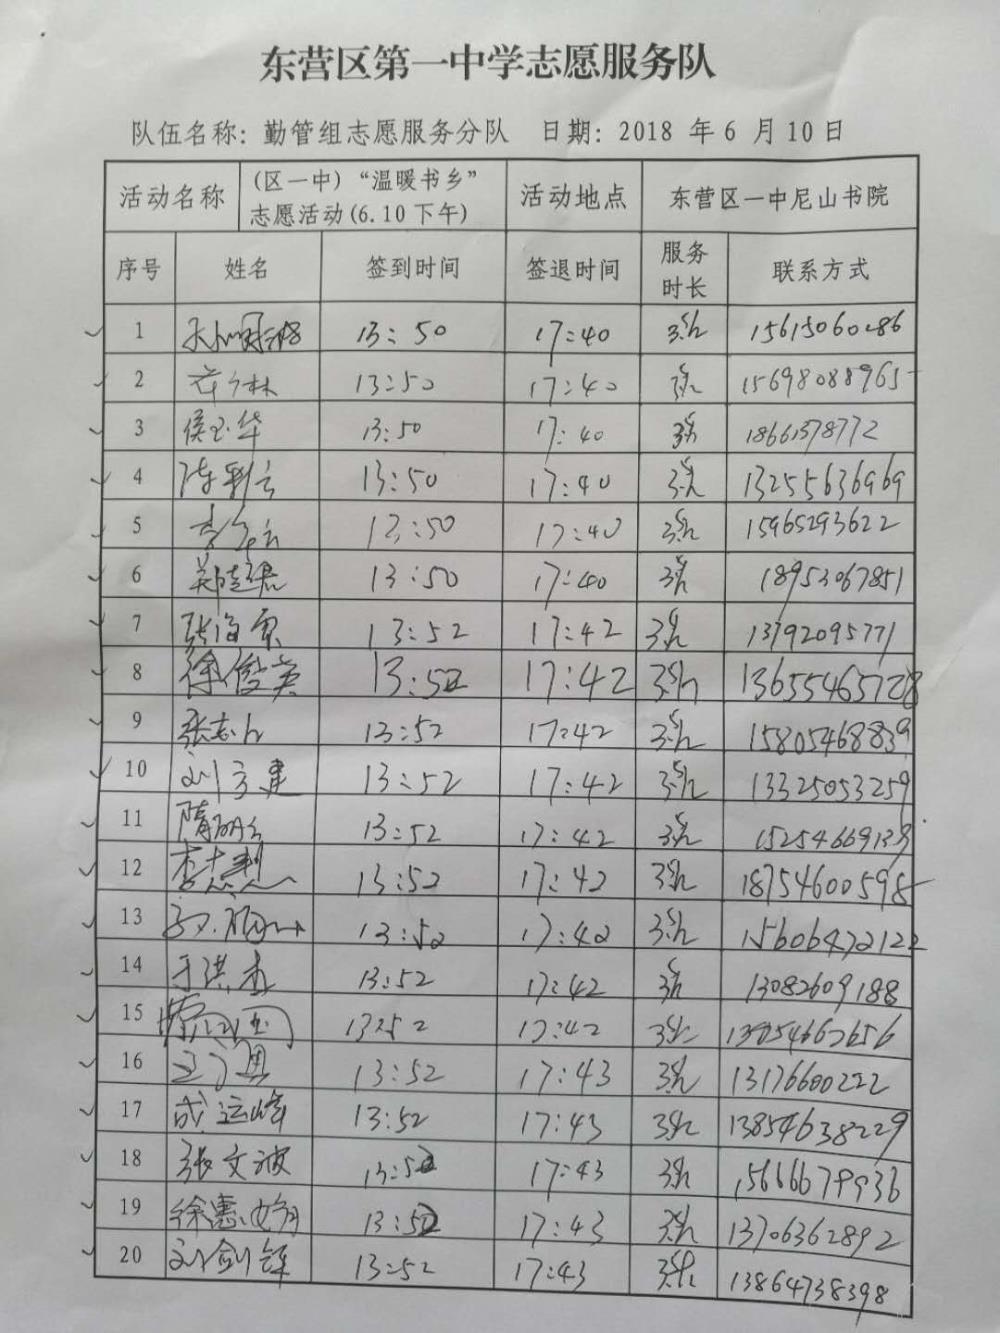 东营区第一中学志愿服务队
队伍名称：勤管组志愿服务分队 日期：2018 年 6 月 10 日
活动名称 (区一中)“温暖书乡” 志愿活动(6.10下午) 活动地点 东营区一中尼山书院
序号 姓名 签到时间 签退时间 服务时长 联系方式
1 13:50 17:40 3.5h 15615060286
2 13:50 17:40 3.5h 15698088965
3 侯玉华 13:50 17:40 3.5h 18661378772
4 陈利云 13:50 17:40 3.5h 13255636969
5 13:50 17:40 3.5h 15965293622
6 13:50 17:40 3.5h 18953067851
7 张海泉 13:52 17:42 3.5h 13792095771
8 徐俊英 13:52 17:42 3.5h 13655465728
9 张志 13:52 17:42 3.5h 15805468839
10 刘方建 13:52 17:42 3.5h 13325053259
11 隋 13:52 17:42 3.5h 15254669139
12 李志刚 13:52 17:42 3.5h 18754600598
13 13:52 17:42 3.5h 15606472122
14 于洪 13:52 17:42 3.5h 13082609188
15 13:52 17:42 3.5h
16 13:52 17:43 3.5h 13176600222
17 成运峰 13:52 17:43 3.5h 13854638229
18 张文波 13:52 17:43 3.5h 15666679936
19 徐惠 13:52 17:43 3.5h 13706362892
20 刘剑锋 13:52 17:43 3.5h 13864738398